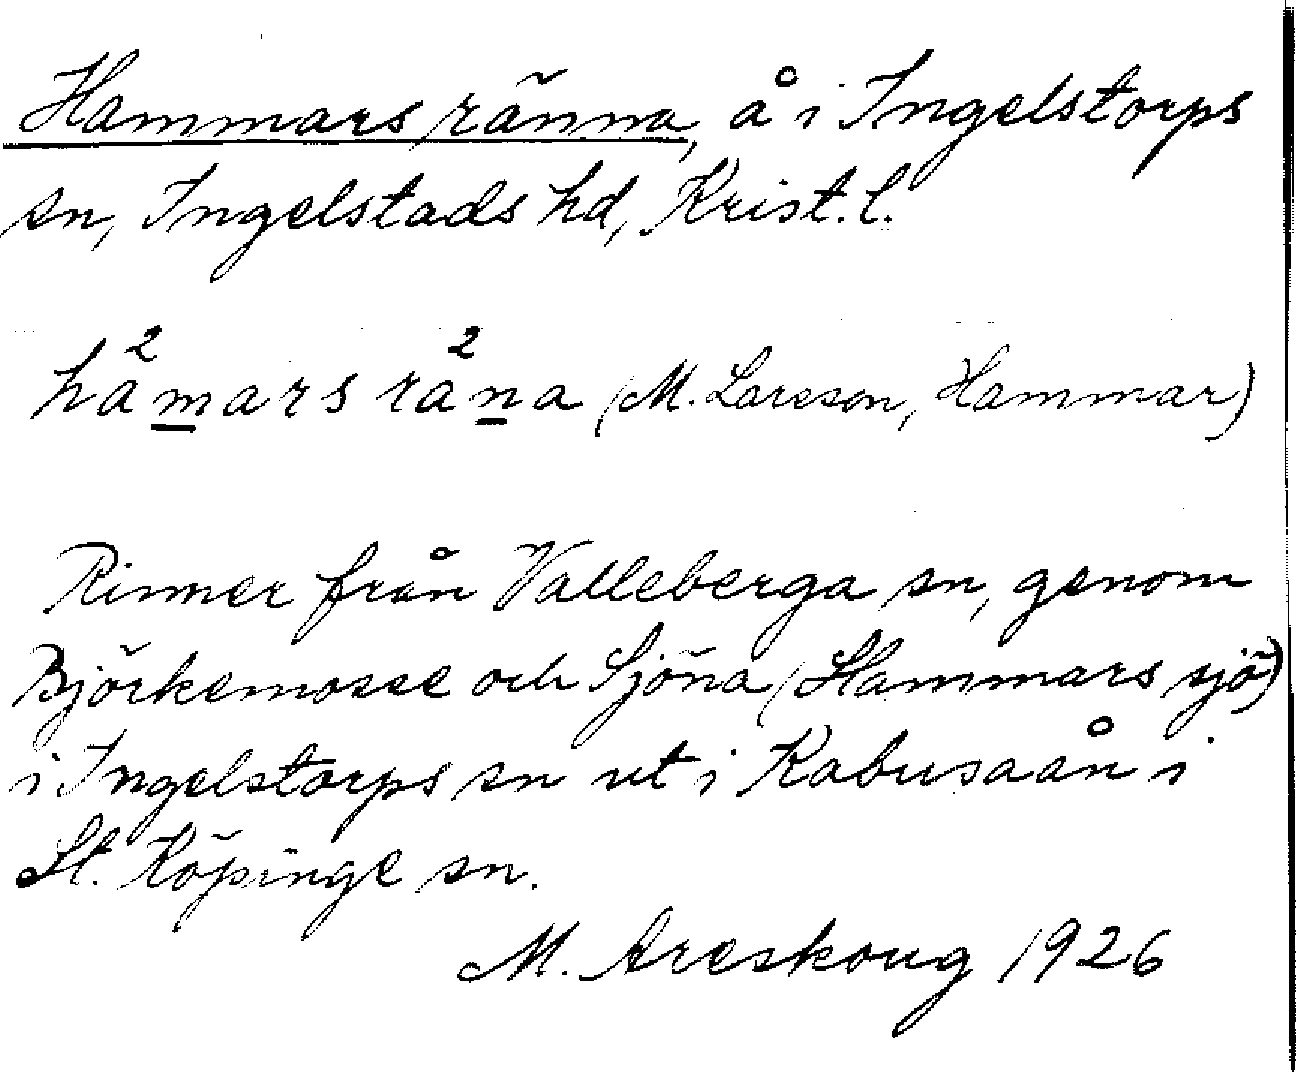 Hammars ränna, å i Ingelstorps
sn, Ingelstads hd, Krist. l.
ha²m̲ars ra²n̲a (M. Larsson, Hammar)
Rinner från Valleberga sn, genom
Björkemosse och Sjöna (Hammars sjö)
i Ingelstorps sn ut i Kabusaån i
St. Köpinge sn.
M. Areskoug 1926